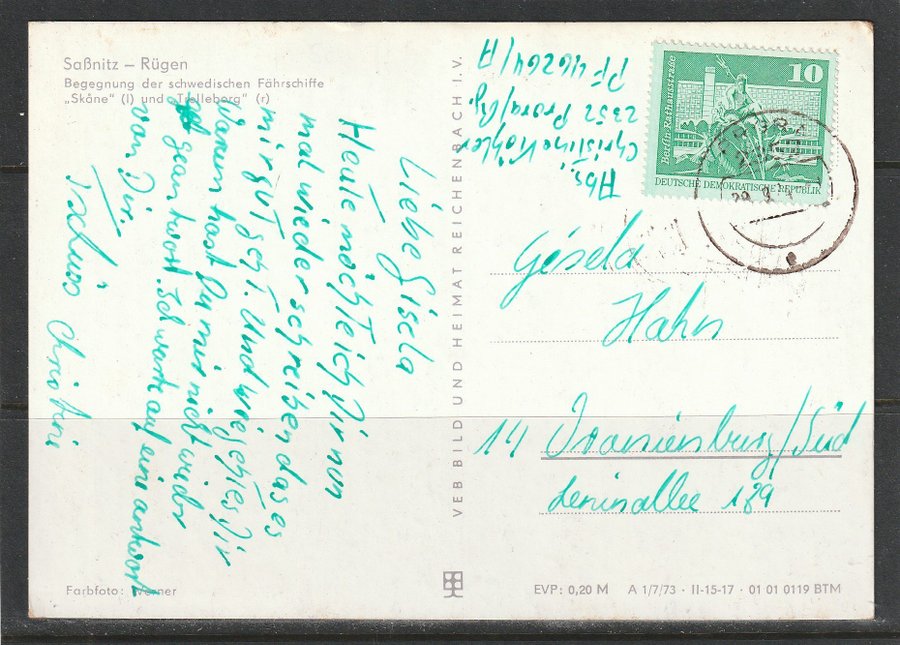 Saßnitz – Rügen
Begegnung der schwedischen Fährschiffe
„Skåne" (l) und „Trelleborg" (r)
Liebe Gisela
Heute möchte ich dir nun
mal wieder schreiben das es
mir gut geht. Und wie geht es dir
Warum hast du mir nicht wieder
geantwort. Ich warte auf eine antwort
von Dir.
Tschüss Christine
Farbfoto: Werner
VEB BILD UND HEIMAT REICHENBACH I. V.
Abs.
Christine Köhler
2352 Prora/Rg.
PF 46264/A
10
Berlin, Rathausstraße
DEUTSCHE DEMOKRATISCHE REPUBLIK
Gisela
Hahn
14 Oranienburg/Süd
Leninallee
EVP: 0,20 M A 1/7/73 · II-15-17 · 01 01 0119 BTM